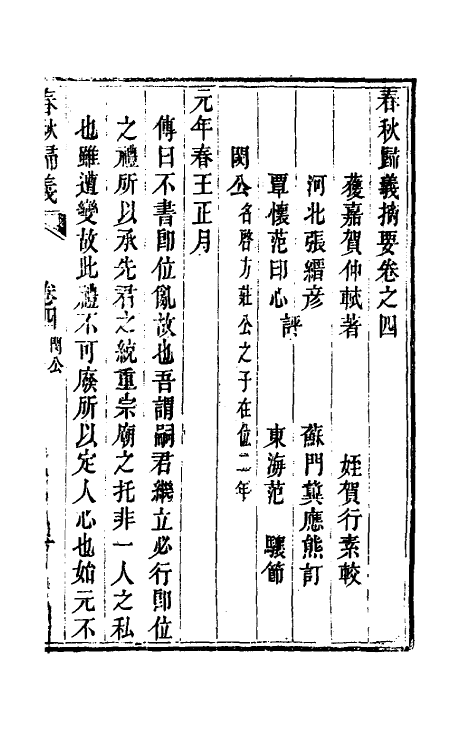 春秋歸義摘要卷之四
獲嘉賀仲軾著 姪賀行素較
河北張縉彥 蘇門冀應熊訂
覃懷范印心評 東海范驤節
閔公名啓方莊公之子在位二年
元年春王正月
傳曰不書即位亂故也吾謂嗣君繼立必行即位
之禮所以承先君之統重宗廟之托非一人之私
也雖遭變故此禮不可廢所以定人心也始元不
春秋歸義 卷四 閔公